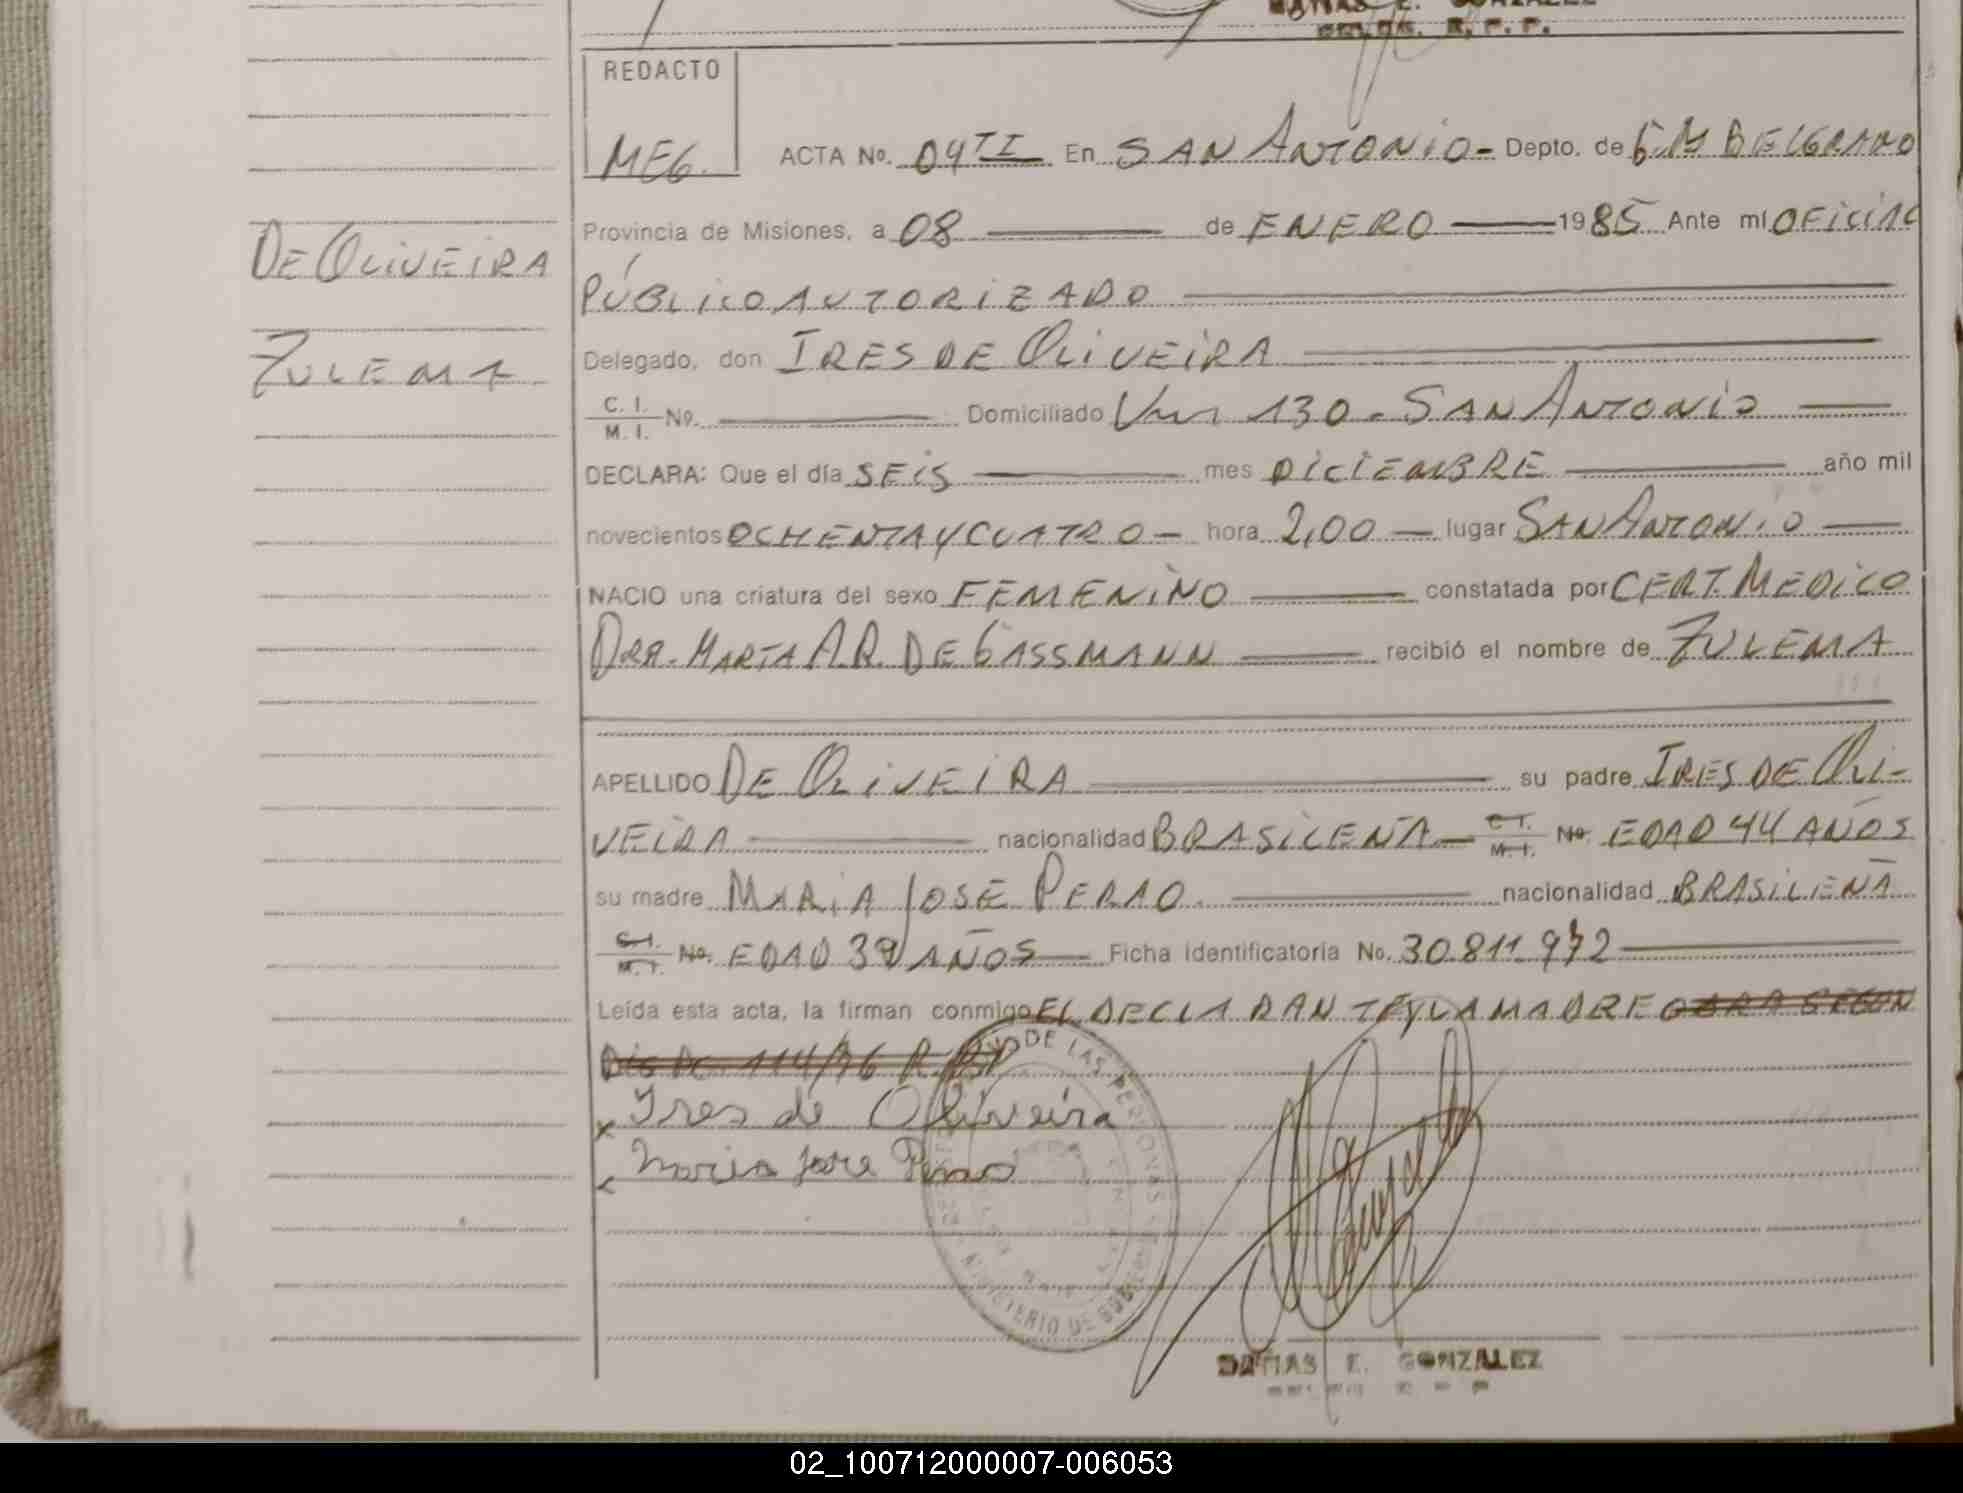 MATIAS E. GONZALEZ
DELEG. R. P. P.
REDACTO
MEG.
ACTA No. 04 TI En SAN ANTONIO - Depto. de G. M BELGRANO
Provincia de Misiones, a 08 de ENERO 1985 Ante mí OFICIAL
PÚBLICO AUTORIZADO
DE OLIVEIRA
ZULEMA
Delegado, don IRES DE OLIVEIRA
C. I. / M. I. No. Domiciliado Km 130 - SAN ANTONIO
DECLARA: Que el día SEIS mes DICIEMBRE año mil
novecientos OCHENTA Y CUATRO - hora 2,00 - lugar SAN ANTONIO
NACIO una criatura del sexo FEMENINO constatada por CERT. MEDICO
DRA. MARTA A.R. DE GASSMANN recibió el nombre de ZULEMA
APELLIDO DE OLIVEIRA su padre IRES DE OLI-
VEIRA nacionalidad BRASILEÑA - C. I. / M. I. No. EDAD 44 AÑOS
su madre MARIA JOSÉ PERAO nacionalidad BRASILEÑA
C. I. / M. I. No. EDAD 39 AÑOS - Ficha identificatoria No. 30.811.972
Leída esta acta, la firman conmigo EL DECLARANTE Y LA MADRE SEGUN
114/76
x Ires de Oliveira
x Maria Jose Perao
DE LAS PERSONAS
MINISTERIO DE GOBIERNO
MATIAS E. GONZALEZ
02_100712000007-006053